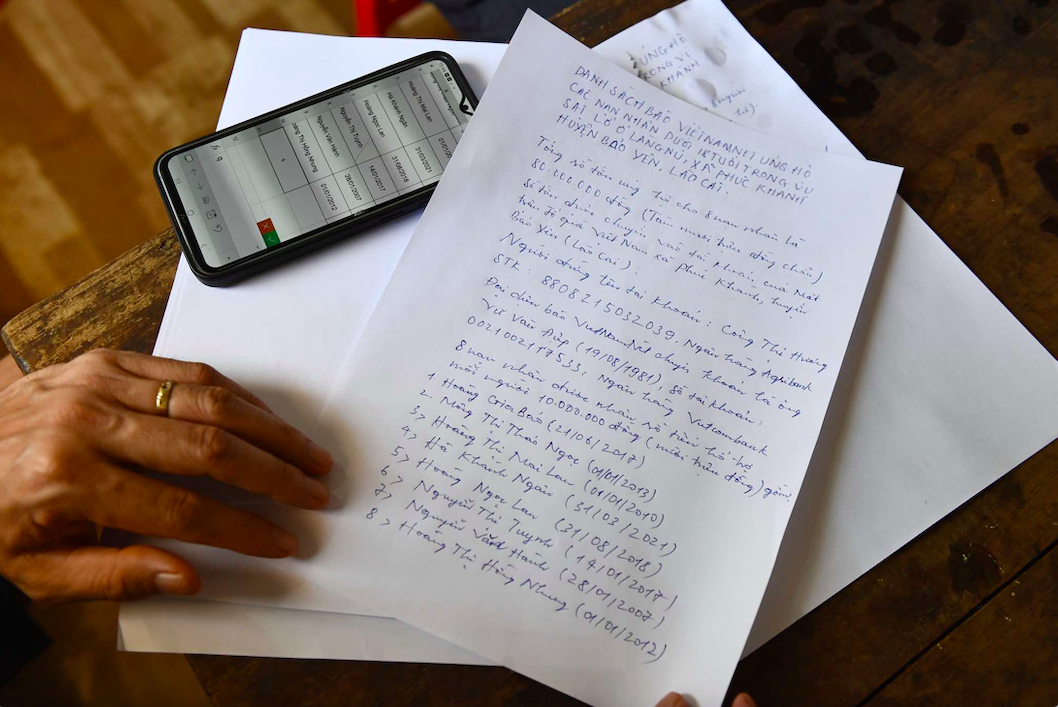 DANH SÁCH BÁO VIETNAMNET ỦNG HỘ
CÁC NẠN NHÂN DƯỚI 18 TUỔI TRONG VỤ
SẠT LỞ Ở LÀNG NỦ, XÃ PHÚC KHÁNH
HUYỆN BẢO YÊN, LÀO CAI.
Tổng số tiền ủng hộ cho 8 nạn nhân là
80.000.000 đồng (Tám mươi triệu đồng chẵn)
Số tiền được chuyển vào tài khoản của Mặt
trận tổ quốc Việt Nam xã Phúc Khánh, huyện
Bảo Yên (Lào Cai):
Người đứng tên tài khoản: Công Thị Hương
STK: 8808215032039, Ngân hàng Agribank
Đại diện báo VietNamNet chuyển khoản là ông
Vũ Văn Điệp (19/08/1981), số tài khoản:
0021002117533, Ngân hàng Vietcombank
8 nạn nhân được nhận số tiền hỗ hợ
mỗi người 10.000.000 đồng (mười triệu đồng) gồm:
1. Hoàng Gia Bảo (21/06/2017)
2. Nông Thị Thảo Ngọc (01/01/2013)
3> Hoàng Thị Mai Lan (01/01/2010)
4> Hà Khánh Ngân (31/03/2021)
5> Hoàng Ngọc Lan (31/08/2018)
6> Nguyễn Thị Tuynh (14/01/2017)
7> Nguyễn Văn Hành (28/01/2007)
8> Hoàng Thị Hồng Nhung (01/01/2012)
ỦNG HỘ
TRONG VỤ
KHÁNH
Hoàng Thị Mai Lan 01/01/20
Hà Khánh Ngân 31/03/2021
Hoàng Ngọc Lan 31/08/2018
Nguyễn Thị Tuynh 14/01/2017
Nguyễn Văn Hành 28/01/2007
àng Thị Hồng Nhung 01/01/2012